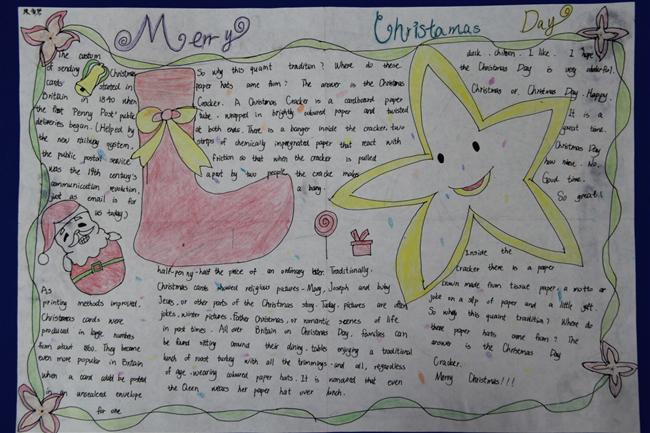 Merry Christamas Day
The custom
of sending Christmas
cards started in
Britain in 1840 when
the first 'Penny Post' public
deliveries began. (Helped by
the new railway system,
the public postal service
was the 19th century's
communication revolution,
just as email is for
us today.)
As
printing methods improved,
Christmas cards were
produced in large numbers
from about 1860. They became
even more popular in Britain
when a card could be posted
in an unsealed envelope
for one
half-penny-half the price of an ordinary letter. Traditionally.
Christmas cards showed religious pictures-Mary, Joseph and baby
Jesus, or other parts of the Christmas story. Today. pictures are often
jokes, winter pictures. Father Christmas, or romantic scenes of life
in past times. All over Britain on Christmas Day, families can
be found sitting around their dining-tables enjoying a traditional
lunch of roast turkey with all the trimmings-and all, regardless
of age. wearing coloured paper hats. It is rumoured that even
the Queen wears her paper hat over lunch.
So why this quaint tradition? Where do these
paper hats come from? The answer is the Christmas
Cracker. A Christmas Cracker is a cardboard paper
tube. wrapped in brightly coloured paper and twisted
at both ends. There is a banger inside the cracker. two
strips of chemically impregnated paper that react with
friction so that when the cracker is pulled
apart by two people the cracke makes
a bang.
Inside the
cracker there is a paper
crown made from tissue paper. a motto or
joke on a slip of paper and a little gift.
So why this quaint tradition? Where do
these paper hats come from? The
answer is the Christmas Day
Cracker.
Merry Christmas!!!
duck. chiken. I like. I hope
the Christmas Day is very
Christmas or. Christmas Day. Happy.
It is a
great time.
Christmas Day
how nine. No.
Good time.
So great!